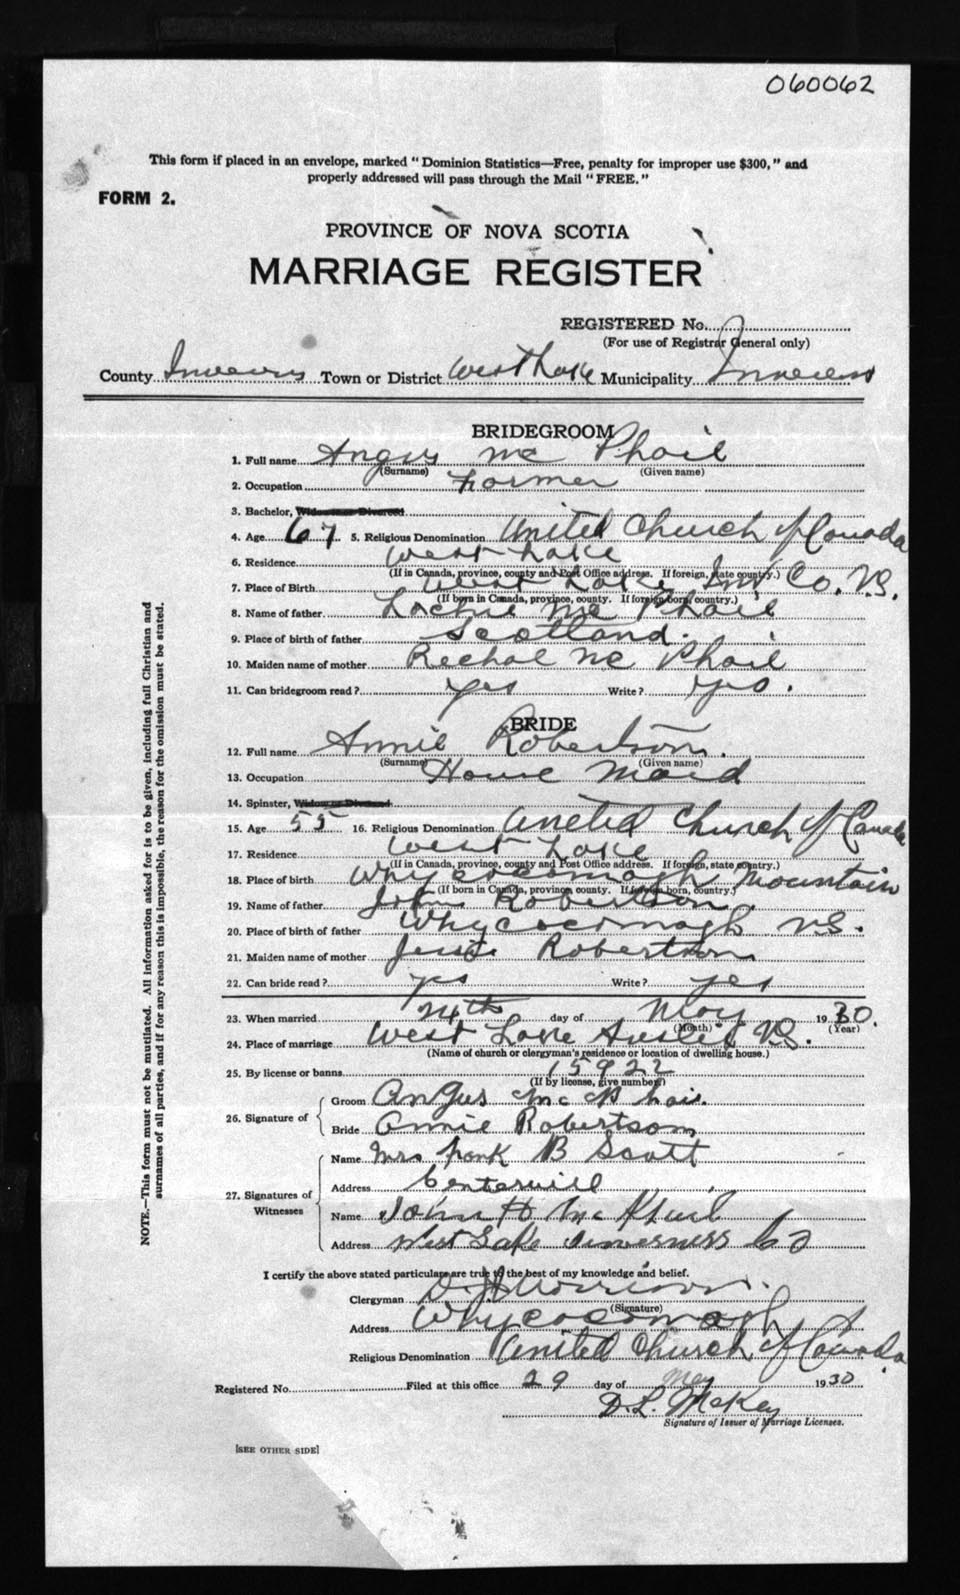 060062
This form if placed in an envelope, marked "Dominion Statistics—Free, penalty for improper use $300," and
properly addressed will pass through the Mail "FREE."
FORM 2.
PROVINCE OF NOVA SCOTIA
MARRIAGE REGISTER
REGISTERED No.
(For use of Registrar General only)
County Inverness Town or District West Lake Municipality Inverness
BRIDEGROOM
1. Full name Angus Mc Phail
(Surname) (Given name)
2. Occupation Farmer
3. Bachelor, Widower or Divorced
4. Age 67 5. Religious Denomination United Church of Canada
6. Residence West Lake
(If in Canada, province, county and Post Office address. If foreign, state country.)
7. Place of Birth West Lake Inv Co. N.S.
(If born in Canada, province, county. If foreign born, country.)
8. Name of father Lachie Mc Phail
9. Place of birth of father Scotland.
10. Maiden name of mother Rechal Mc Phail
11. Can bridegroom read? yes Write? yes.
BRIDE
12. Full name Annie Robertson.
(Surname) (Given name)
13. Occupation House Maid
14. Spinster, Widow or Divorced
15. Age 55 16. Religious Denomination United Church of Canada
17. Residence West Lake
(If in Canada, province, county and Post Office address. If foreign, state country.)
18. Place of birth Whycocomagh Mountain
(If born in Canada, province county. If foreign born, country.)
19. Name of father John Robertson.
20. Place of birth of father Whycocomagh N.S.
21. Maiden name of mother Jessie Robertson
22. Can bride read? yes Write? yes
23. When married 24th day of May 1930.
(Month) (Year)
24. Place of marriage West Lake N.S.
(Name of church or clergyman's residence or location of dwelling house.)
25. By license or banns 15922
(If by license, give number)
26. Signature of
Groom Angus Mc Phail.
Bride Annie Robertson
27. Signatures of Witnesses
Name Mrs Frank B Scott
Address Centervill
Name John H Mc Phail
Address West Lake Inverness Co
I certify the above stated particulars are true to the best of my knowledge and belief.
Clergyman D. Morrison.
(Signature)
Address Whycocomagh
Religious Denomination United Church of Canada.
Registered No. Filed at this office 29 day of May 1930
D. L. McKay
Signature of Issuer of Marriage Licenses.
[SEE OTHER SIDE]
NOTE.—This form must not be mutilated. All information asked for is to be given, including full Christian and
surnames of all parties, and if for any reason this is impossible, the reason for the omission must be stated.